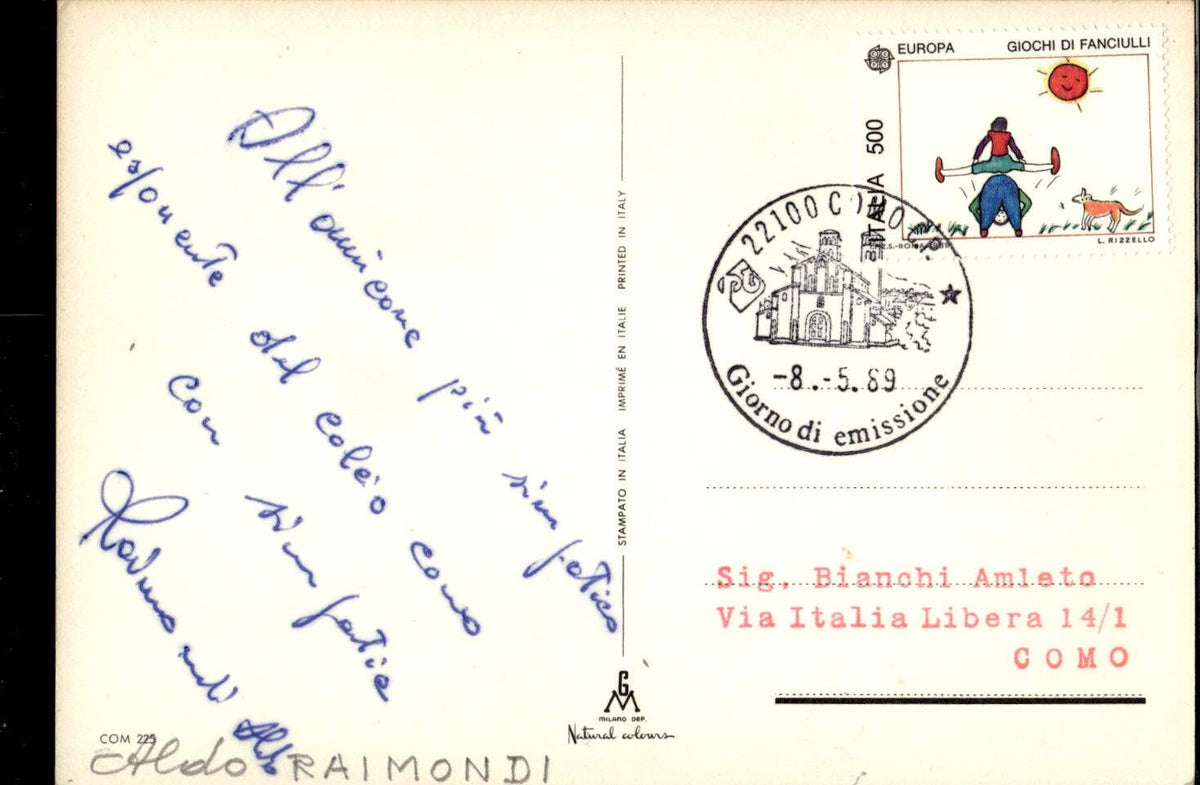 All'amicone più simpatico
esponente del calcio como
con simpatia
Raimondi Aldo
COM 225
Aldo RAIMONDI
STAMPATO IN ITALIA IMPRIMÉ EN ITALIE PRINTED IN ITALY
GM
MILANO DEP.
Natural colours
EUROPA GIOCHI DI FANCIULLI
ITALIA 500
L. RIZZELLO
22100 COMO
-8.-5.89
Giorno di emissione
Sig. Bianchi Amleto
Via Italia Libera 14/1
COMO